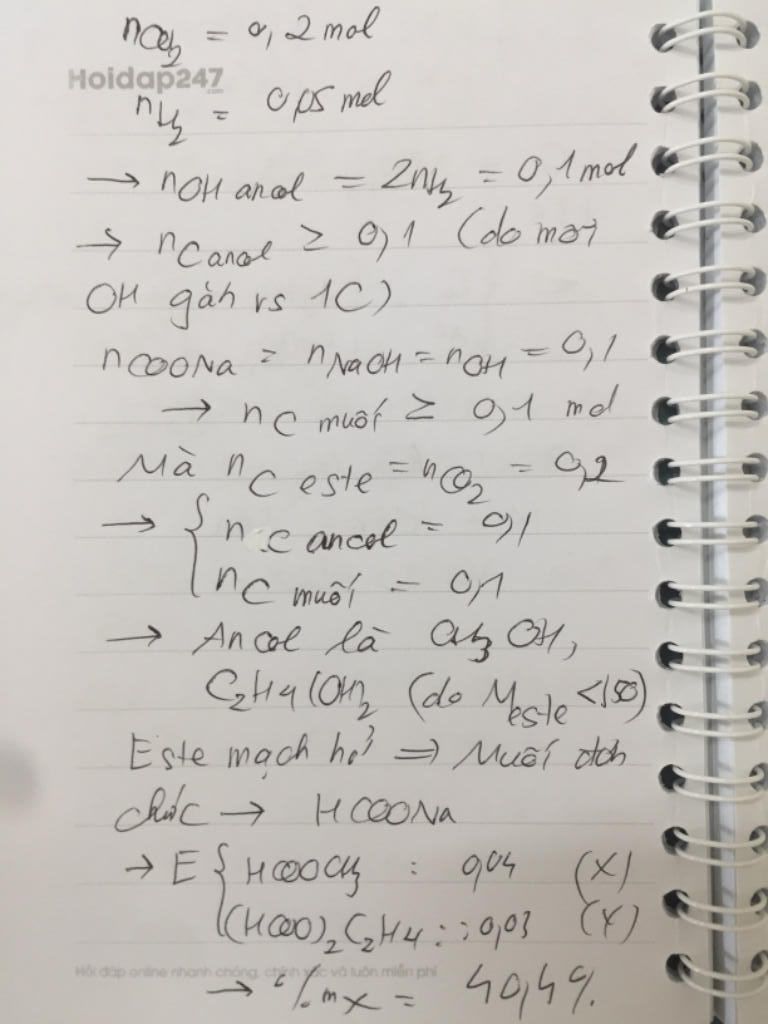 nCO₂ = 0,2 mol
Hoidap247
.com
nH₂ = 0,05 mol
→ nOH ancol = 2nH₂ = 0,1 mol
→ nC ancol ≥ 0,1 (do mỗi
OH gắn vs 1C)
nCOONa = nNaOH = nOH = 0,1
→ nC muối ≥ 0,1 mol
Mà nC este = nCO₂ = 0,2
→ { nC ancol = 0,1
nC muối = 0,1
→ Ancol là CH₃OH,
C₂H₄(OH)₂ (do Meste <150)
Este mạch hở ⇒ Muối đơn
chức → HCOONa
→ E { HCOOCH₃ : 0,04 (X)
(HCOO)₂C₂H₄ : : 0,03 (Y)
Hỏi đáp online nhanh chóng, chính xác và luôn miễn phí
→ %mX = 40,4%.